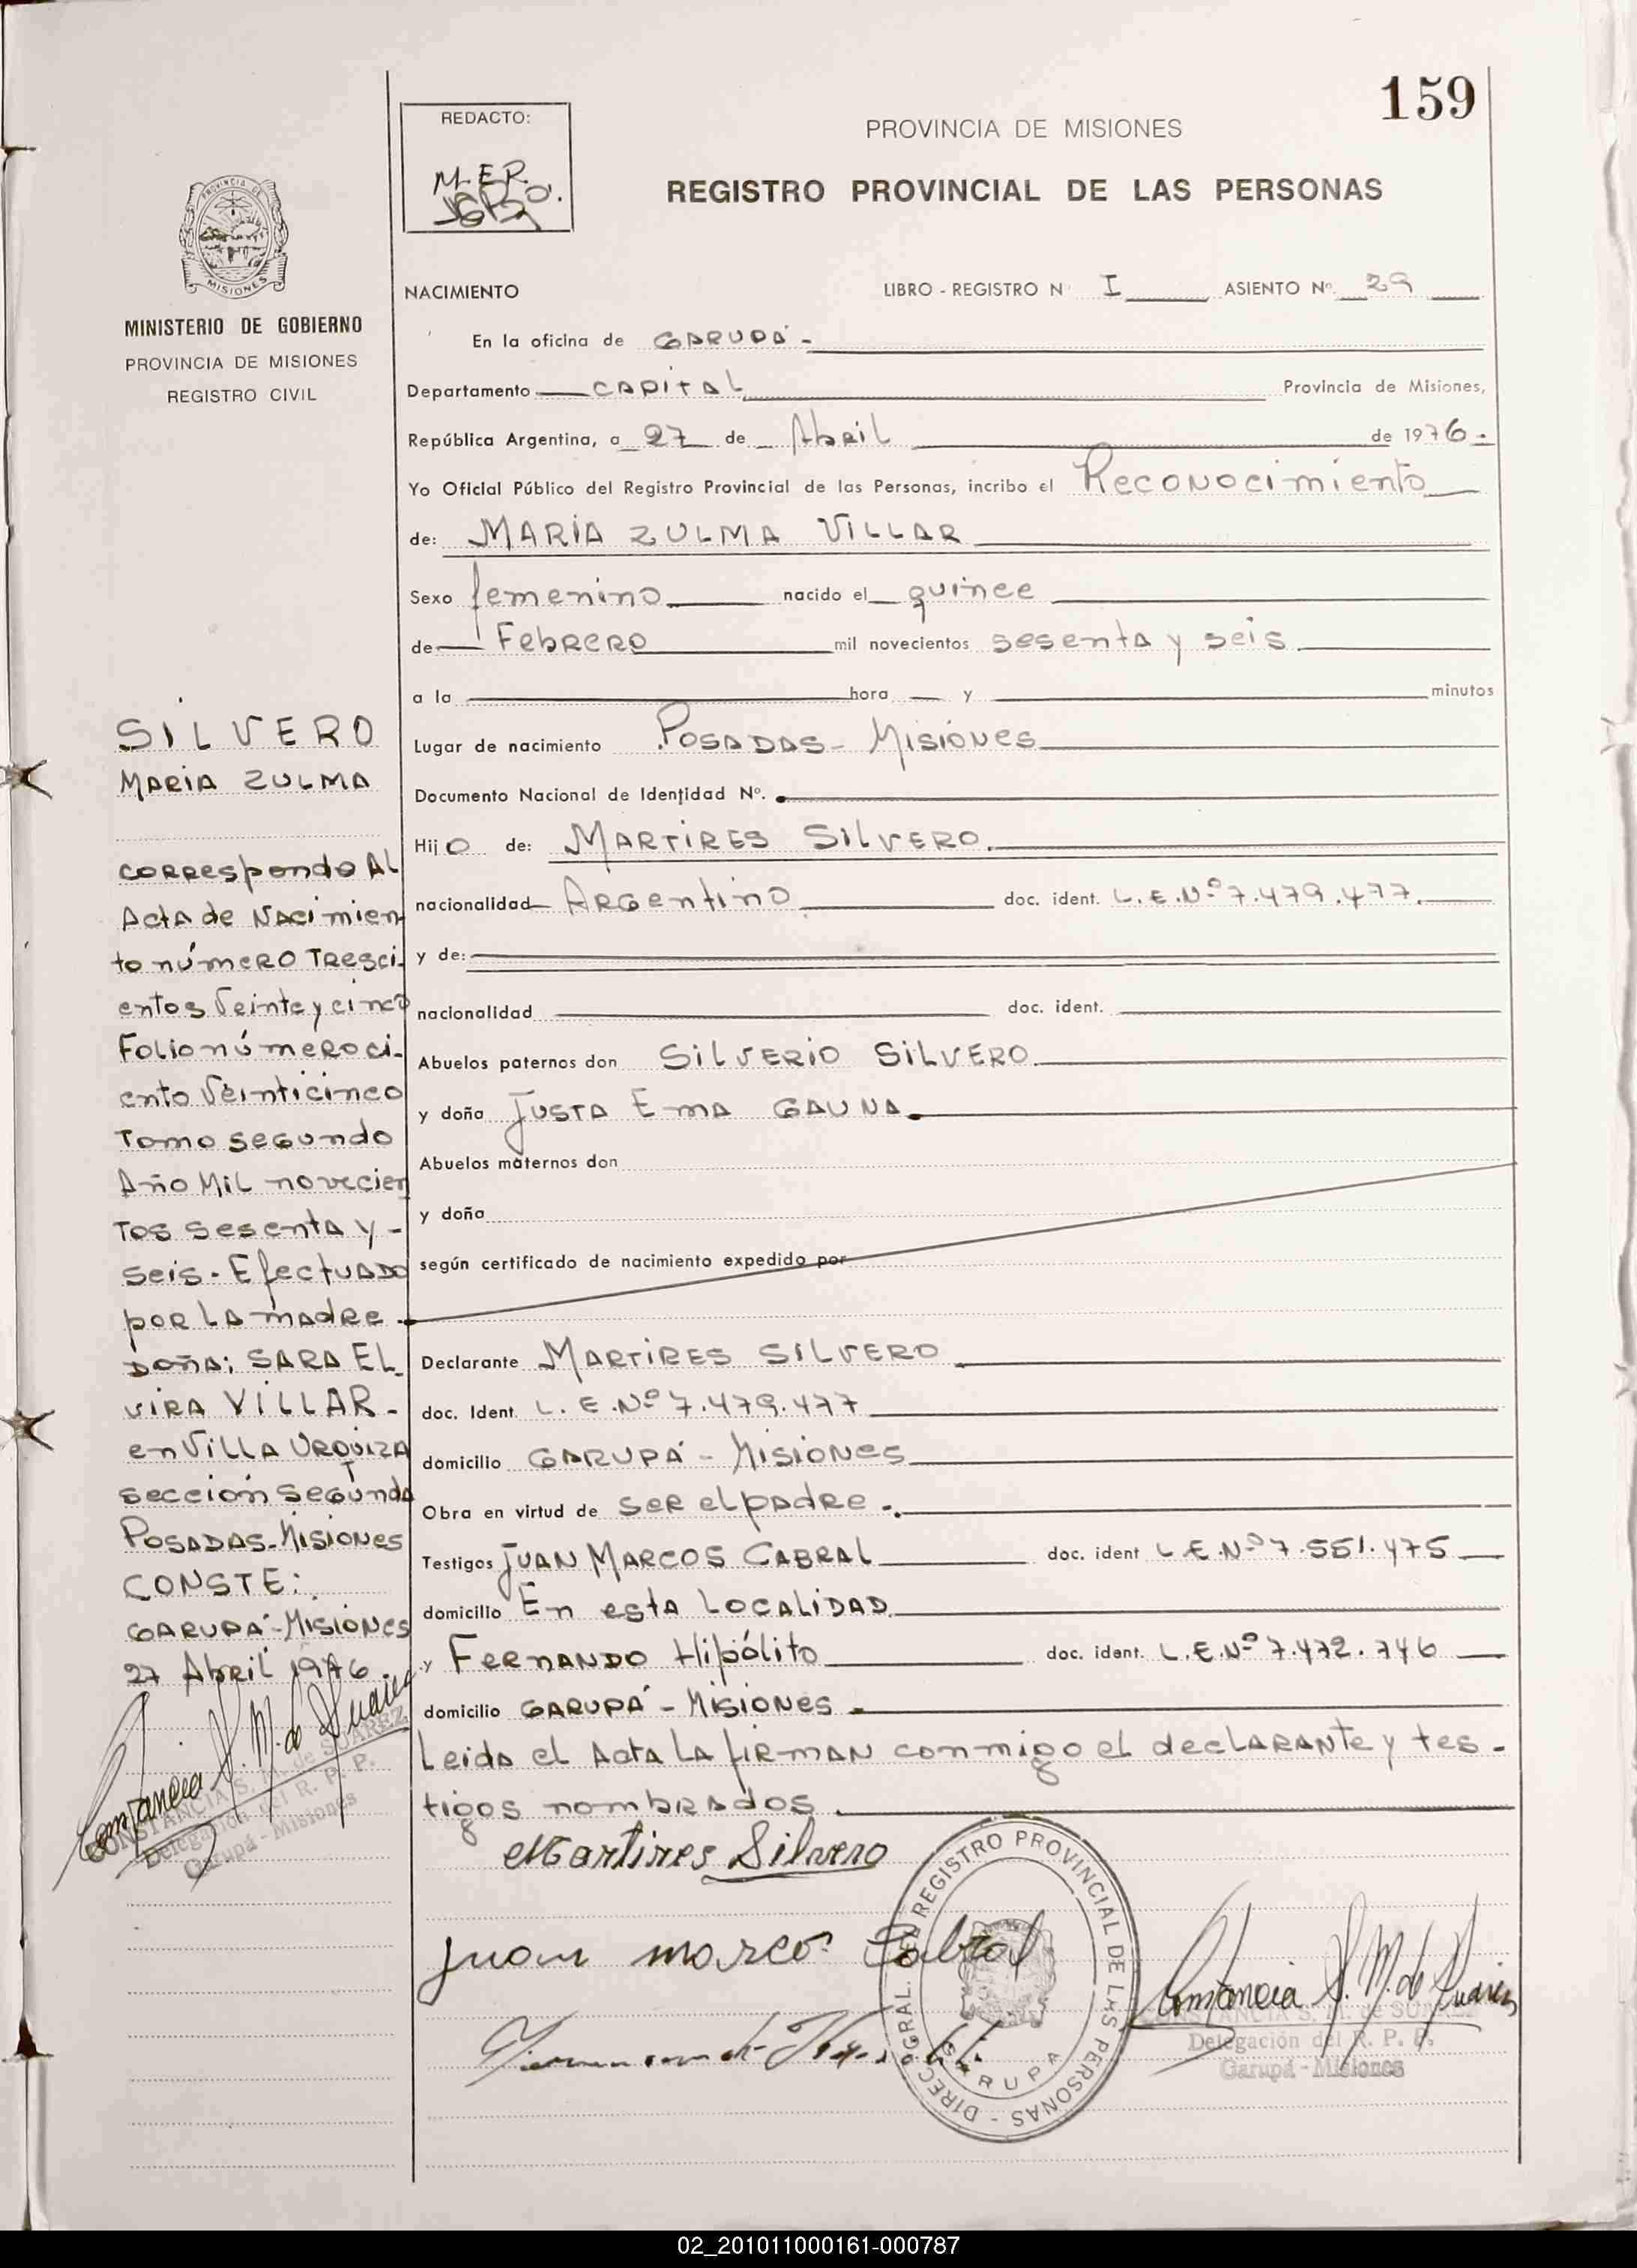 159
REDACTO:
M.E.R.
PROVINCIA DE MISIONES
REGISTRO PROVINCIAL DE LAS PERSONAS
PROVINCIA DE
MISIONES
MINISTERIO DE GOBIERNO
PROVINCIA DE MISIONES
REGISTRO CIVIL
NACIMIENTO LIBRO - REGISTRO Nº I ASIENTO Nº. 29
En la oficina de GARUPÁ-
Departamento CAPITAL Provincia de Misiones,
República Argentina, a 27 de Abril de 1976.-
Yo Oficial Público del Registro Provincial de las Personas, incribo el Reconocimiento
de: MARÍA ZULMA VILLAR
Sexo femenino nacido el quince
de Febrero mil novecientos sesenta y seis
a la hora y minutos
Lugar de nacimiento POSADAS - Misiones
Documento Nacional de Identidad Nº.
Hijo de: MARTIRES SILVERO.
nacionalidad Argentino doc. ident. L.E.Nº 7.479.477.
y de:
nacionalidad doc. ident.
Abuelos paternos don SILVERIO SILVERO.
y doña JUSTA EMA GAUNA.
Abuelos maternos don
y doña
según certificado de nacimiento expedido por
Declarante MARTIRES SILVERO
doc. Ident. L.E.Nº 7.479.477
domicilio GARUPÁ - Misiones
Obra en virtud de ser el padre.
Testigos JUAN MARCOS CABRAL doc. ident L.E.Nº 7.551.475
domicilio En esta LOCALIDAD
y FERNANDO Hipólito doc. ident. L.E.Nº 7.472.746
domicilio GARUPÁ - Misiones
Leida el Acta la firman conmigo el declarante y tes-
tigos nombrados
Martires Silvero
Juan marcos Cabral
DIREC. GRAL. DEL REGISTRO PROVINCIAL DE LAS PERSONAS -
GARUPA
Constancia S. M. de Suarez
CONSTANCIA S. M. de SUAREZ
Delegación del R. P. P.
Garupá - Misiones
SILVERO
MARIA ZULMA
corresponde Al
Acta de Nacimien
to número Tresci-
entos Veinte y cinco
Folio número ci-
ento Veinticinco
Tomo segundo
Año Mil novecien
tos sesenta y -
seis. Efectuado
por la madre
Doña: SARA EL
VIRA VILLAR -
en Villa Urquiza
sección segunda
Posadas-Misiones
CONSTE:
GARUPÁ-Misiones
27 Abril 1976.
Constancia S. M. de Suarez
CONSTANCIA S. M. de SUAREZ
Delegación del R. P. P.
Garupá - Misiones
02_201011000161-000787